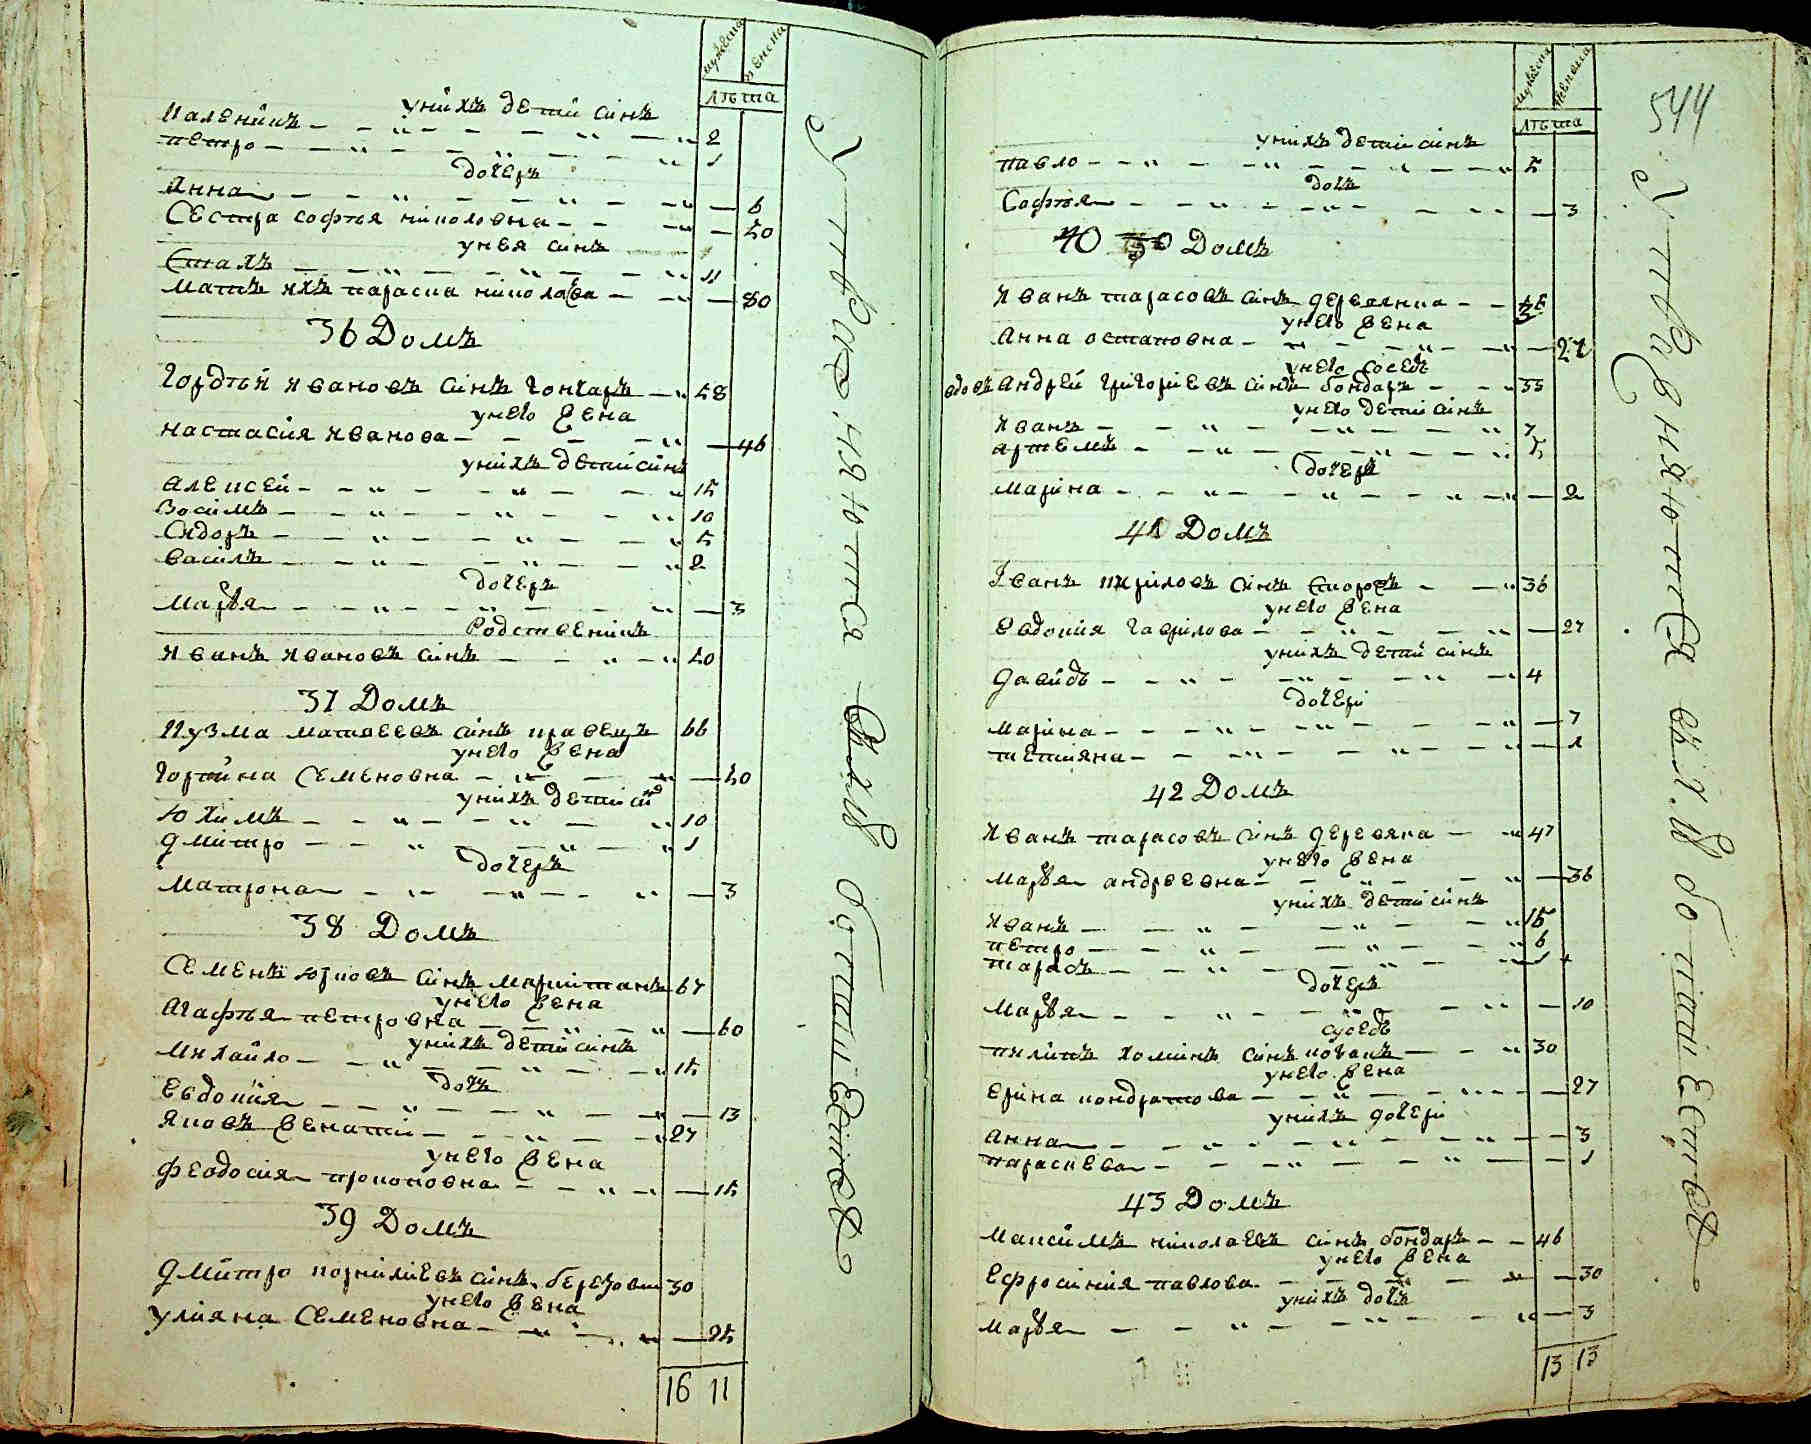 мужеска женска
лѣта
унихъ дети синъ
Каленикъ 2
петро 1
дочеръ
Анна 6
Сестра софья николовна 50
унея синъ
Еmахъ 11
мать ихъ параска николова 80
36 Домъ
Гордѣй Ивановъ синъ Гончаръ 58
унего жена
настасия Иванова 46
унихъ дети синъ
Алексей 15
Зосимъ 10
Сидоръ 5
василъ 2
дочеръ
Маря 3
Родственикъ
Иванъ Ивановъ синъ 50
37 Домъ
Кузма матвеевъ синъ кравецъ 66
унего жена
Горпина Семеновна 50
унихъ дети син
Юхимъ 10
Дмитро 1
дочеръ
матрона 3
38 Домъ
Семенъ юрковъ синъ 67
унего жена
Агафья петровна 60
унихъ дети синъ
михайло 15
дочъ
Евдокия 13
Яковъ женати 27
унего жена
Феодосия прокоповна 15
39 Домъ
Дмитро корнилиевъ синъ березовки 30
унего жена
улияна Семеновна 25
16 11
Утверждаются
мужеска женска
544
лѣта
унихъ дети синъ
павло 5
дочъ
Софья 3
40 Домъ
Иванъ тарасовъ синъ деревянка
унего жена
Анна остаповна 27
унего сосед
вдовъ Андрей Григориевъ синъ бондаръ 35
унего дети синъ
Иванъ 7
артемъ 5
дочеръ
марина 2
41 Домъ
Иванъ кириловъ синъ 36
унего жена
Евдокия гаврилова 27
унихъ дети синъ
Давидъ 4
дочери
марина 7
тетияна 1
42 Домъ
Иванъ тарасовъ синъ деревяка 47
унего жена
маря андреевна 36
унихъ дети синъ
Иванъ 15
петро 6
тарасъ 1
дочеръ
маря 10
суседъ
пилипъ хоминъ синъ 30
унего жена
Ерина кондратова 27
унихъ дочери
Анна 3
параскева 1
43 Домъ
Максимъ николаевъ синъ бондаръ 46
унего жена
Ефросиния павлова 30
унихъ дочъ
маря 3
13 13